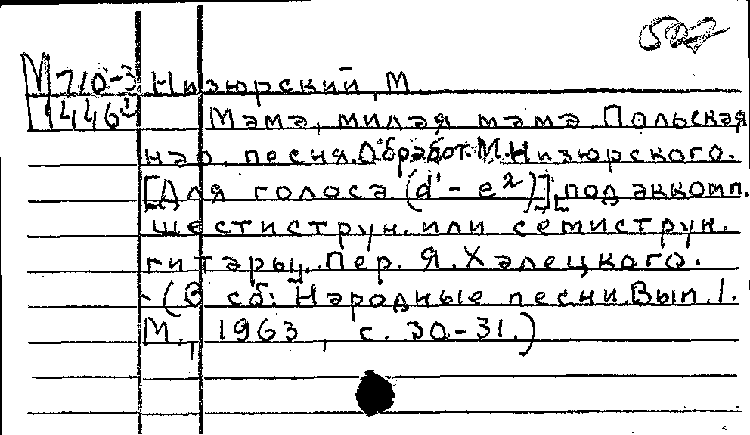 507
М 710-3 Низюрский, М.
14464 Мама, милая мама. Польская
нар. песня. Обработ. М. Низюрского.
[Для голоса (d¹ - e²)], под аккомп.
шестиструн. или семиструн.
гитары. Пер. Я. Халецкого.
- (В сб: Народные песни. Вып. 1.
М., 1963, с. 30-31.)